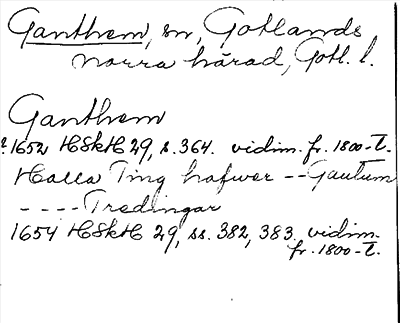 Ganthem, sn, Gotlands
norra härad, Gotl. l.
Ganthem
? 1652 HSkH 29, s. 364. vidim. fr. 1800-t.
Halla Ting hafwer -- Gautum
---- Tredingar
1654 HSkH 29, ss. 382, 383. vidim.
fr. 1800-t.